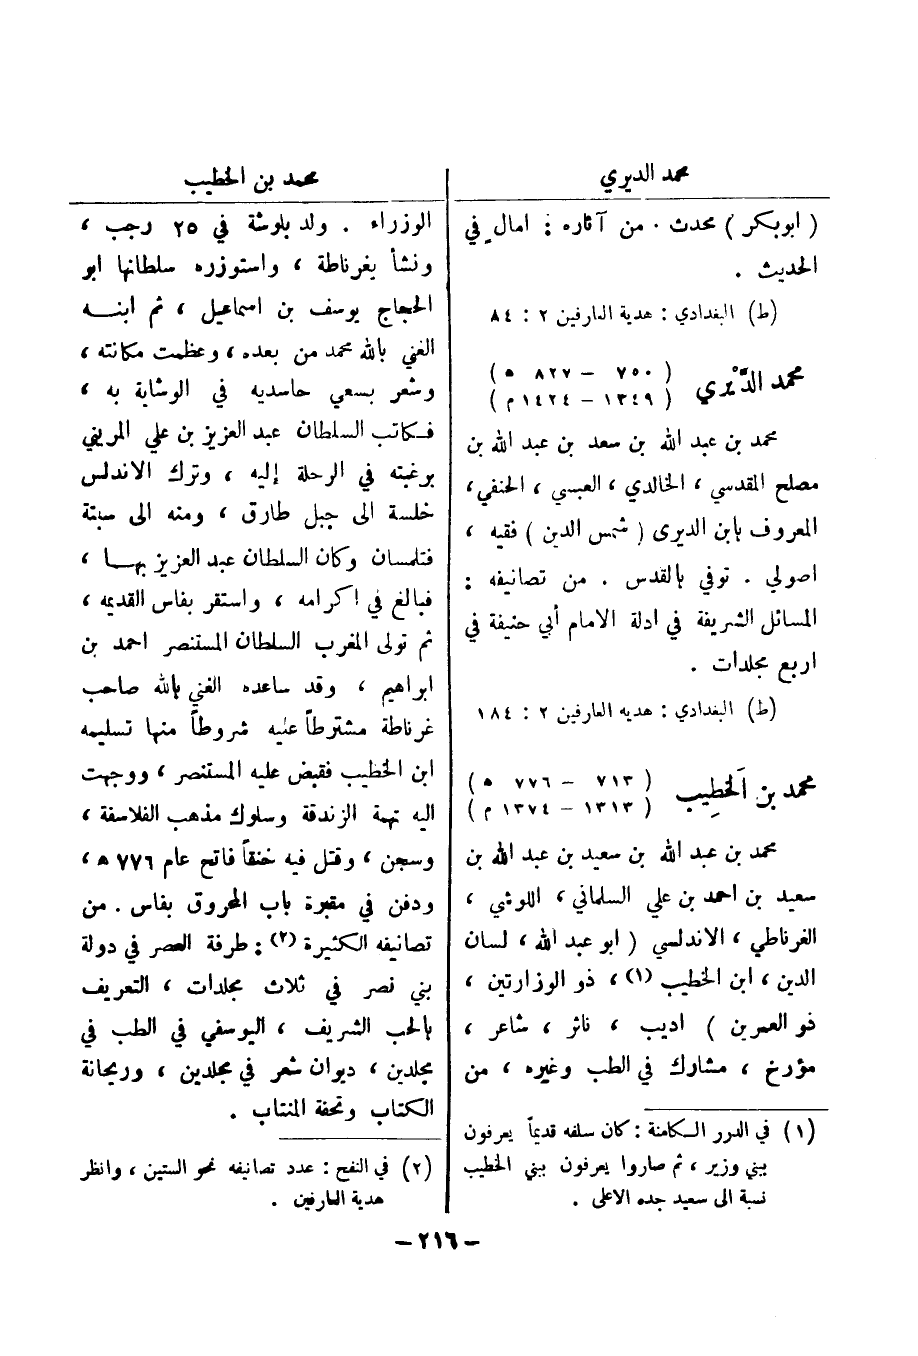 محمد الديري
( ابوبكر ) محدث . من آثاره : امال في
الحديث .
(ط) البغدادي : هدية العارفين ٢ : ٨٤
محمد الدَّيْري ( ٧٥٠ – ٨٢٧ ه )
( ١٣٤٩ – ١٤٢٤ م )
محمد بن عبد الله بن سعد بن عبد الله بن
مصلح المقدسي ، الخالدي ، العبسي ، الحنفي ،
المعروف بابن الديرى ( شمس الدين ) فقيه ،
اصولي . توفي بالقدس . من تصانيفه :
المسائل الشريفة في ادلة الامام أبي حنيفة في
اربع مجلدات .
(ط) البغدادي : هديه العارفين ٢ : ١٨٤
محمد بن الَخطِيب ( ٧١٣ – ٧٧٦ ه )
( ١٣١٣ – ١٣٧٤ م )
محمد بن عبد الله بن سعيد بن عبد الله بن
سعيد بن احمد بن علي السلماني ، اللوشي ،
الغرناطي ، الاندلسي ( ابو عبد الله ، لسان
الدين ، ابن الخطيب (١) ، ذو الوزارتين ،
ذو العمرين ) اديب ، ناثر ، شاعر ،
مؤرخ ، مشارك في الطب وغيره ، من
(١) في الدرر الكامنة : كان سلفه قديماً يعرفون
بني وزير ، ثم صاروا يعرفون بني الخطيب
نسبة الى سعيد جده الاعلى .
محمد بن الخطيب
الوزراء . ولد بلوشة في ٢٥ رجب ،
ونشأ بغرناطة ، واستوزره سلطانها ابو
الحجاج يوسف بن اسماعيل ، ثم ابنه
الغني بالله محمد من بعده ، وعظمت مكانته ،
وشعر بسعي حاسديه في الوشاية به ،
فكاتب السلطان عبد العزيز بن علي المريني
برغبته في الرحلة إليه ، وترك الاندلس
خلسة الى جبل طارق ، ومنه الى سبتة
فتلمسان وكان السلطان عبد العزيز بها ،
فبالغ في اكرامه ، واستقر بفاس القديمه ،
ثم تولى المغرب السلطان المستنصر احمد بن
ابراهيم ، وقد ساعده الغني بالله صاحب
غرناطة مشترطاً عليه شروطاً منها تسليمه
ابن الخطيب فقبض عليه المستنصر ، ووجهت
اليه تهمة الزندقة وسلوك مذهب الفلاسفة ،
وسجن ، وقتل فيه خنقاً فاتح عام ٧٧٦ ه ،
ودفن في مقبرة باب المحروق بفاس . من
تصانيفه الكثيرة (٢) : طرفة العصر في دولة
بني نصر في ثلاث مجلدات ، التعريف
بالحب الشريف ، اليوسفي في الطب في
مجلدين ، ديوان شعر في مجلدين ، وريحانة
الكتاب وتحفة المنتاب .
(٢) في النفح : عدد تصانيفه نحو الستين ، وانظر
هدية العارفين .
– ٢١٦ –